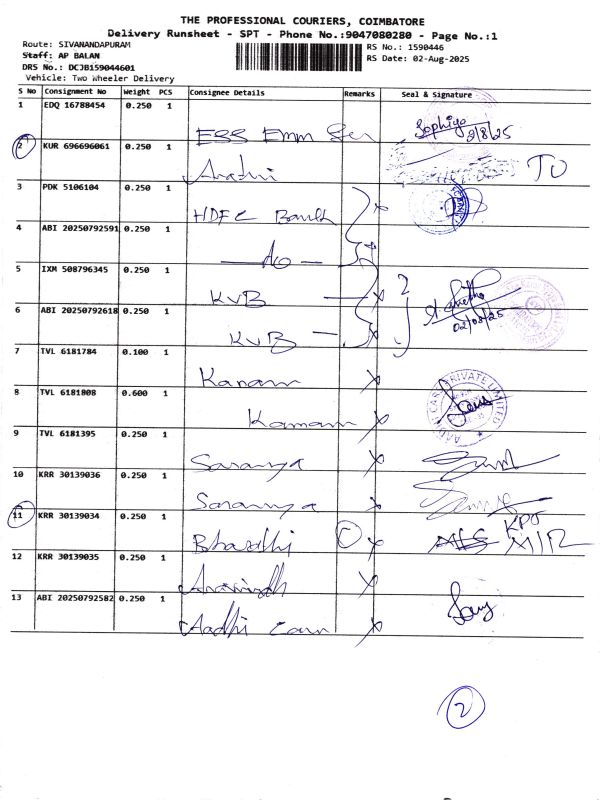 THE PROFESSIONAL COURIERS, COIMBATORE
Delivery Runsheet - SPT - Phone No.:9047080280 - Page No.:1
Route: SIVANANDAPURAM
RS No.: 1590446
Staff: AP BALAN
RS Date: 02-Aug-2025
DRS No.: DCJB159044601
Vehicle: Two Wheeler Delivery
S No Consignment No Weight PCS Consignee Details Remarks Seal & Signature
1 EDQ 16788454 0.250 1 Sophiya
2/8/25
2 KUR 696696061 0.250 1 TO
3 PDK 5106104 0.250 1 HDFC Bank
4 ABI 20250792591 0.250 1 do
5 IXM 508796345 0.250 1 KVB
02/08/25
6 ABI 20250792618 0.250 1 KVB
7 TVL 6181784 0.100 1 Kanam
8 TVL 6181808 0.600 1 PRIVATE LIMITED
9 TVL 6181395 0.250 1 Saranya
10 KRR 30139036 0.250 1 Saranya
11 KRR 30139034 0.250 1 Bharathi
12 KRR 30139035 0.250 1 Aravindh
13 ABI 20250792582 0.250 1 Aadhi Cars
2